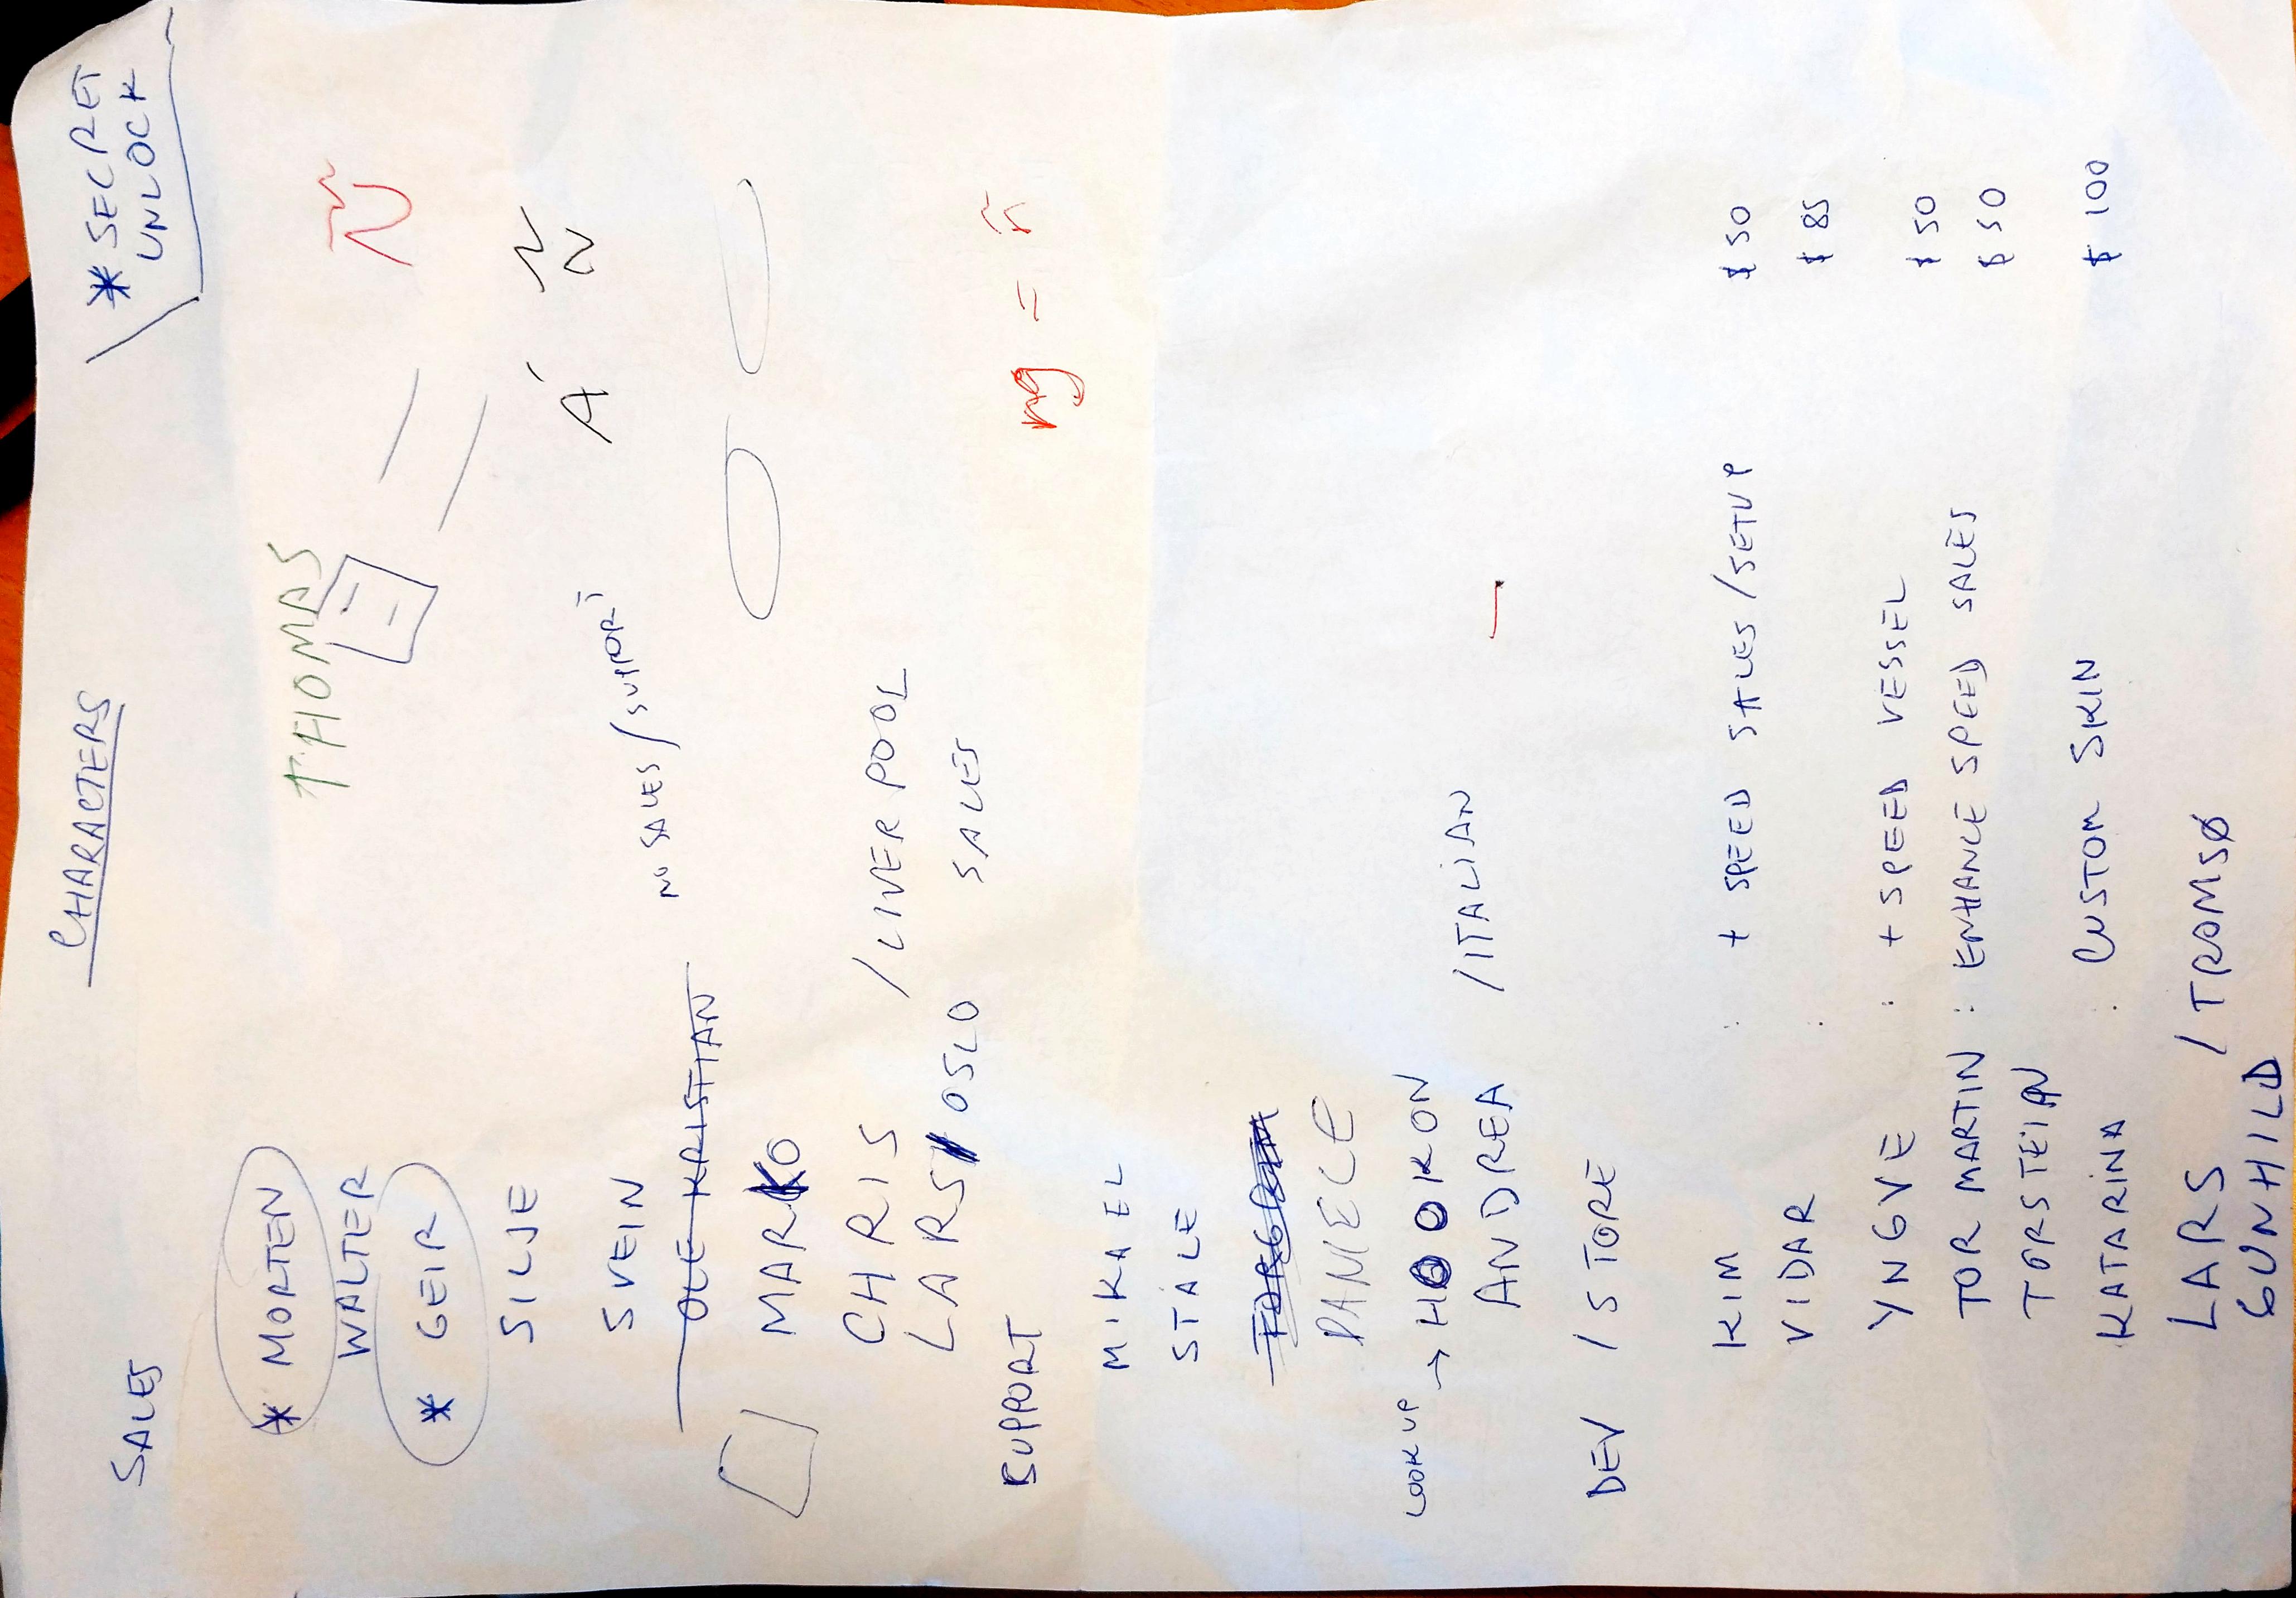 CHARACTERS
* SECRET
UNLOCK
SALES
* MORTEN
THOMAS
WALTER
Ñ
* GEIR
SILJE
Á Ñ
SVEIN
NO SALES/SUPPORT
OLE KRISTIAN
MARKO
CHRIS /LIVERPOOL
LARS/OSLO SALES
SUPPORT
ng = ñ
MIKAEL
STÅLE
TORGRIM
DANIELE
LOOK UP → HOOKON
ANDREA /ITALIAN
DEV /STORE
KIM : + SPEED SALES/SETUP $50
VIDAR : $85
YNGVE : + SPEED VESSEL $50
TOR MARTIN : ENHANCE SPEED SALES $50
TORSTEIN
KATARINA : CUSTOM SKIN $100
LARS /TROMSØ
GUNHILD